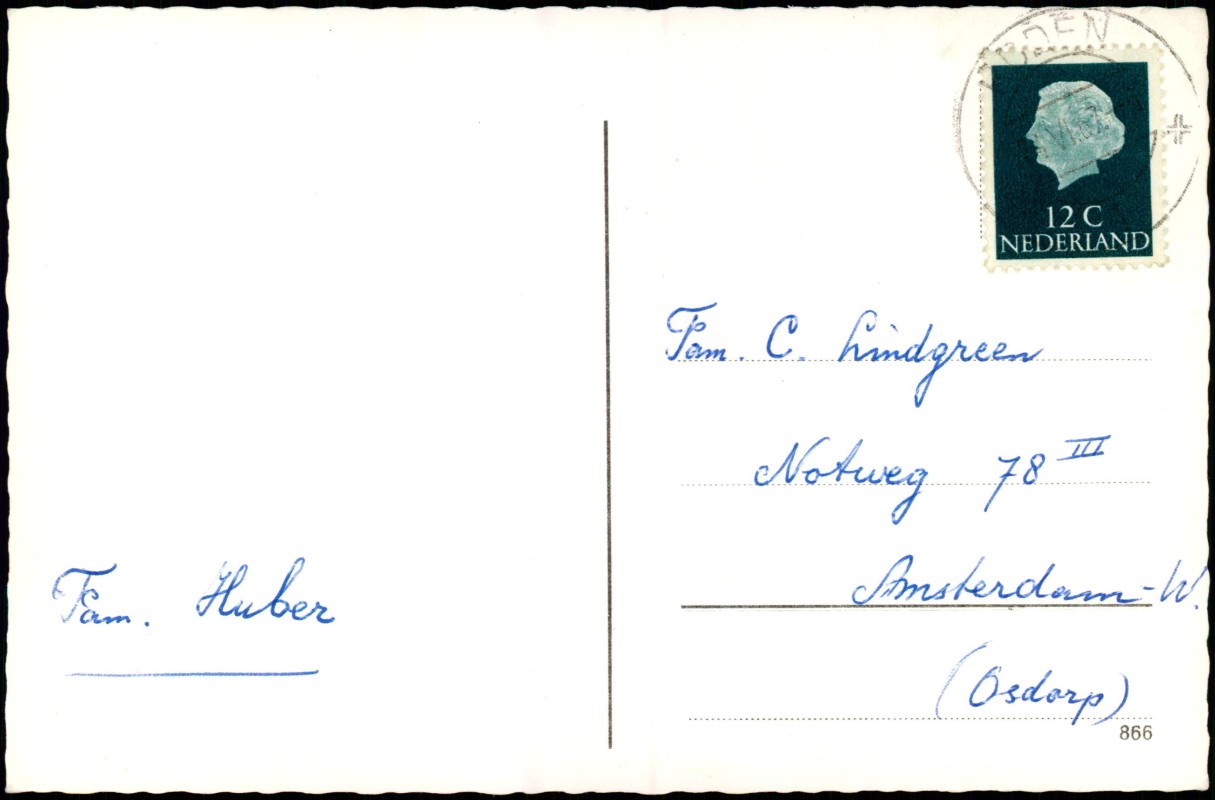 12 C
NEDERLAND
Fam. C. Lindgreen
Notweg 78 III
Amsterdam-W.
(Osdorp)
Fam. Huber
866